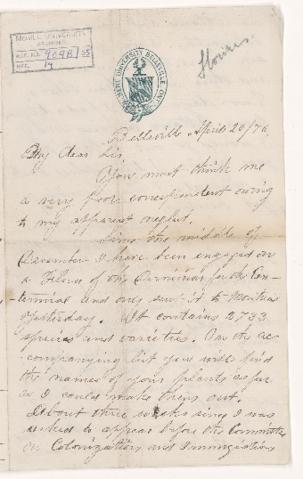 McGILL UNIVERSITY
ARCHIVES
ACC. NO. 909B/35
REF. 14
Flowers
ALBERT UNIVERSITY BELLEVILLE ONT.
Belleville, April 20/76.
My dear Sir,
You must think me
a very poor correspondent owing
to my apparent neglect.
Since the middle of
December I have been engaged on
a Flora of the Dominion for the Cen-
tennial and only sent it to Montreal
yesterday. It contains 2733
species and varieties. On the ac-
companying list you will find
the names of your plants as far
as I could make them out.
About three weeks since I was
asked to appear before the Committee
on Colonization and Immigration